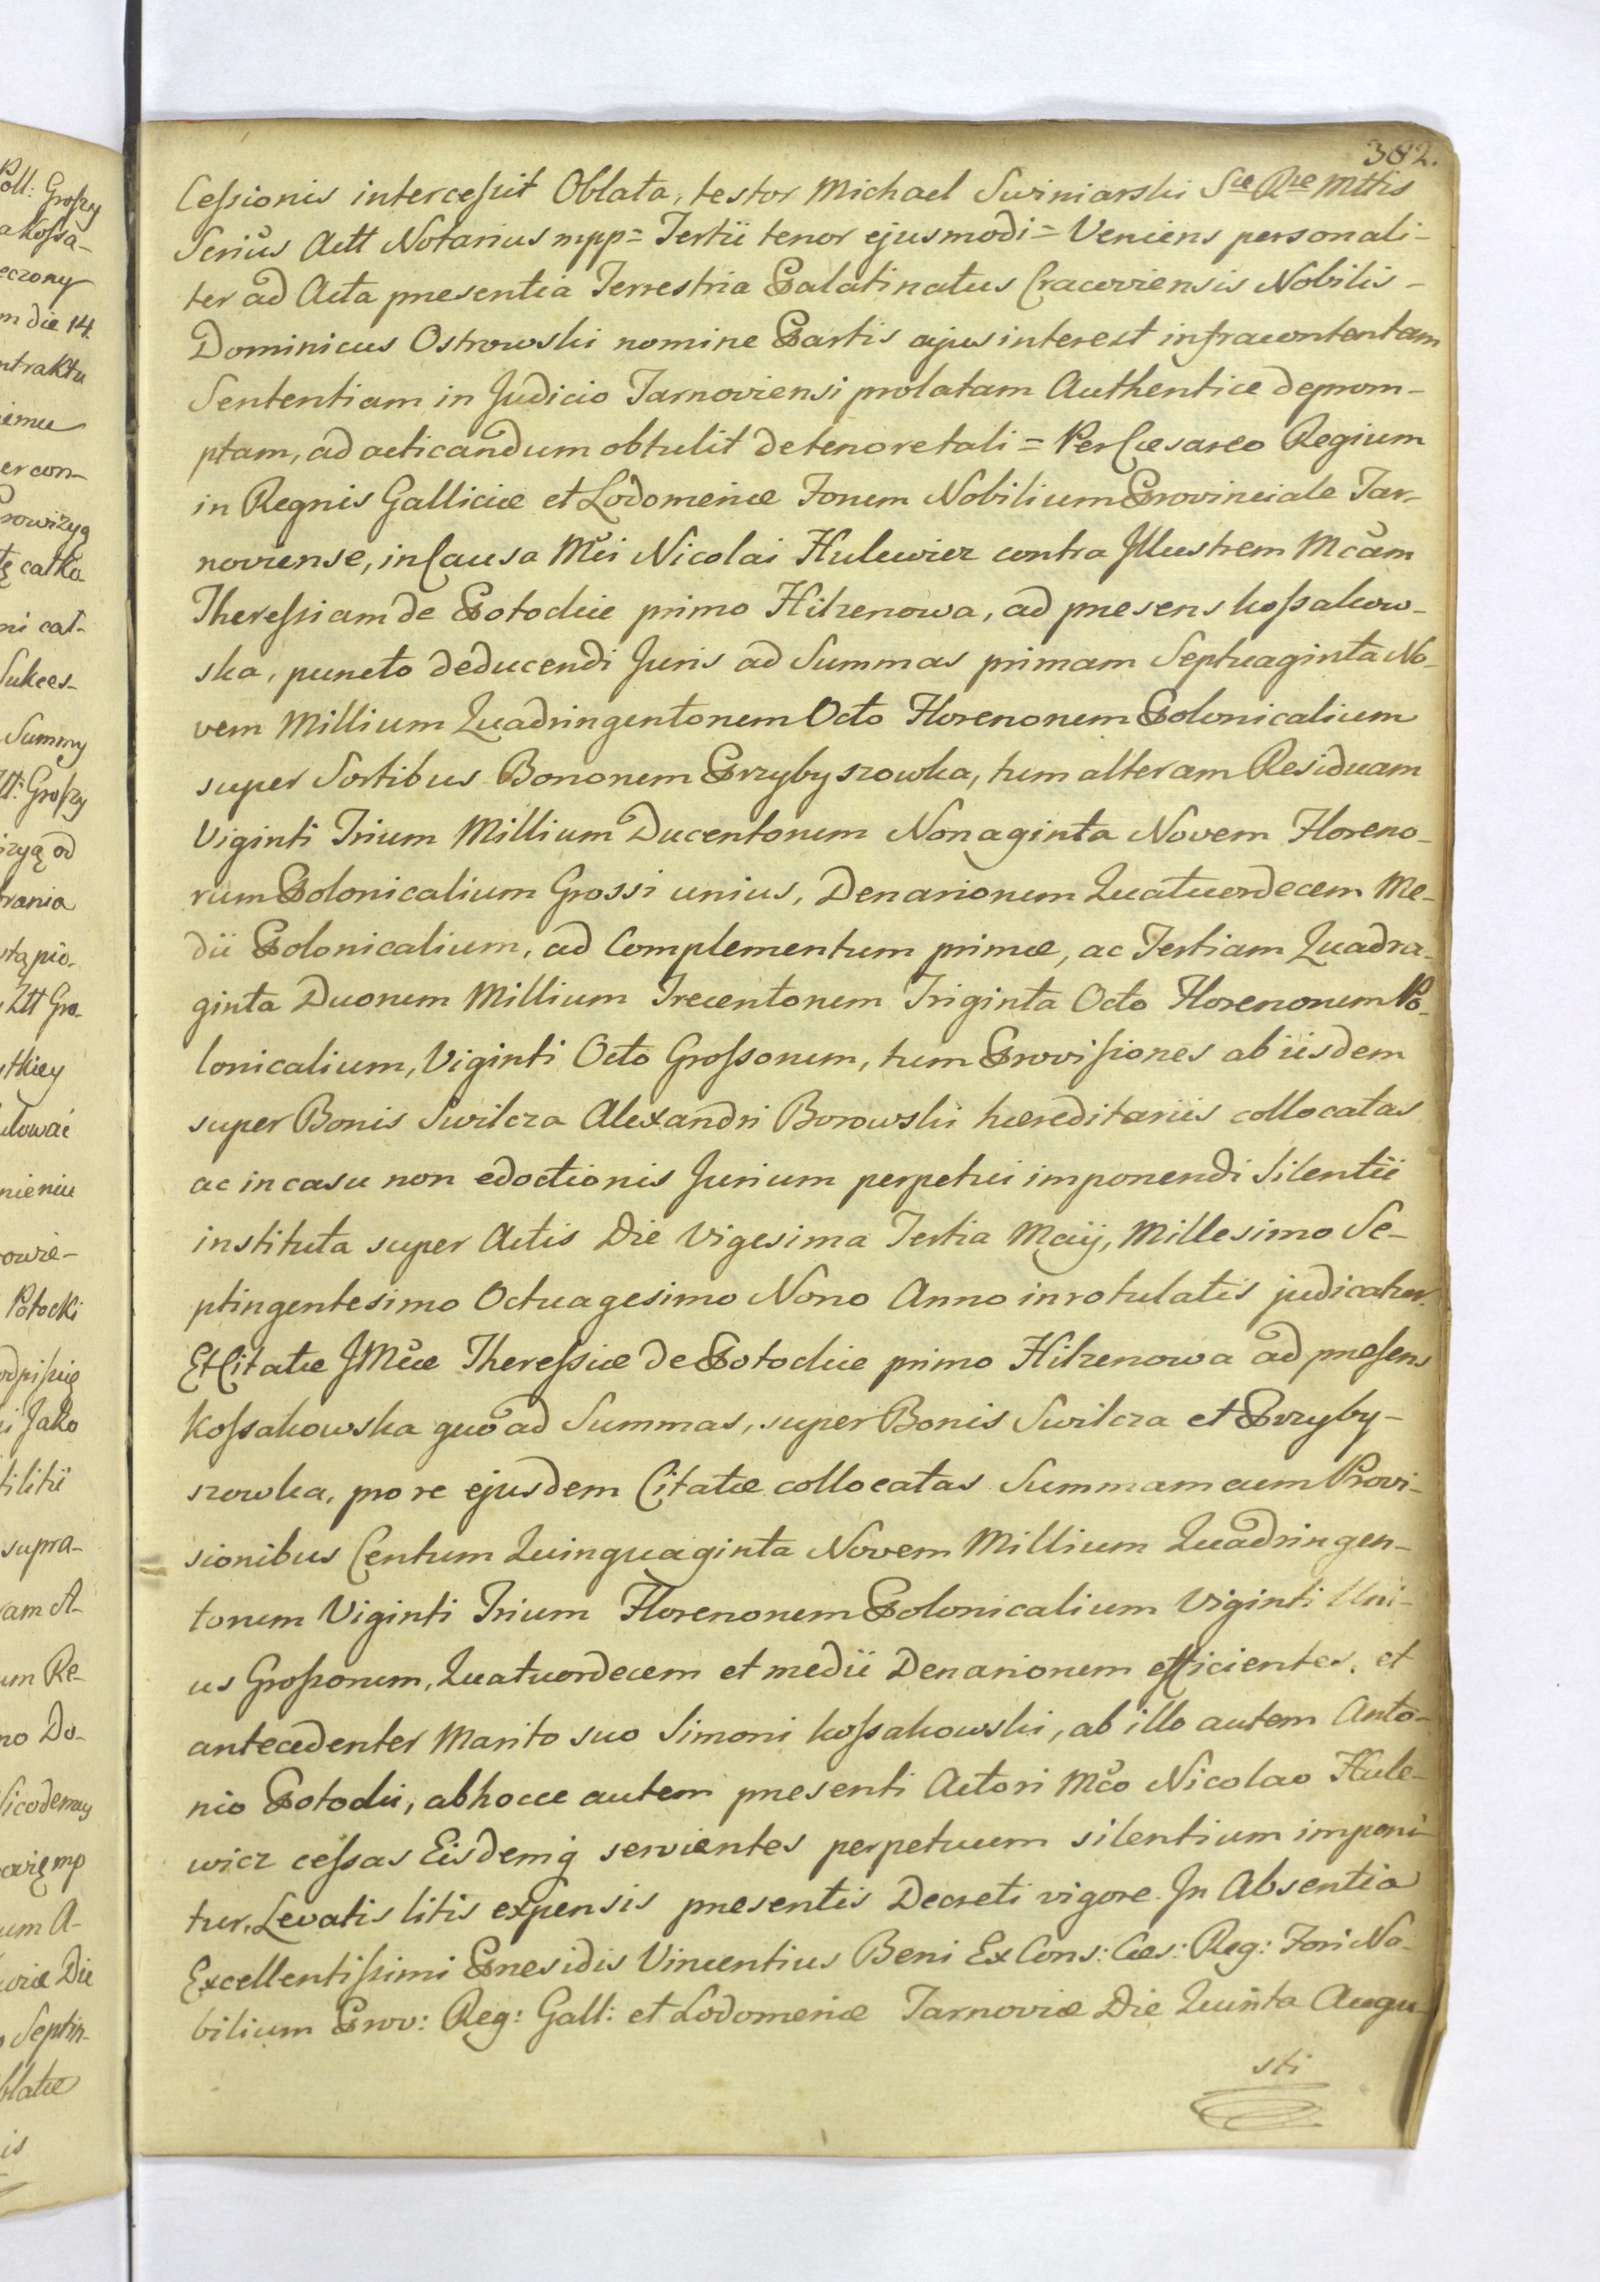 382.
Cessionis intercessit Oblata, testor Michael Swiniarski Sæ Ræ Mttis
Serius Actt Notarius mpp = Tertii tenor ejusmodi = Veniens personali-
ter ad Acta præsentia Terrestria Palatinatus Cracoviensis Nobilis -
Dominicus Ostrowski nomine Partis cujus interest infracontentam
Sententiam in Judicio Tarnoviensi prolatam Authentice deprom-
ptam, ad acticandum obtulit de tenore tali = Per Cæsareo Regium
in Regnis Galliciæ et Lodomeriæ Forum Nobilium Provinciale Tar-
noviense, in Causa Mci Nicolai Hulewicz contra Illustrem Mcam
Theressiam de Potockie primo Hilzenowa, ad præsens Kossakow-
ska, puncto deducendi Juris ad Summas primam Septuaginta No-
vem Millium Quadringentorum Octo Florenorum Polonicalium
super Sortibus Bonorum Przybyszowka, tum alteram Residuam
Viginti Trium Millium Ducentorum Nonaginta Novem Floreno-
rum Polonicalium Grossi unius, Denariorum Quatuordecem Me-
dii Polonicalium, ad Complementum primæ, ac Tertiam Quadra-
ginta Duorum Millium Trecentorum Triginta Octo Florenorum Po-
lonicalium, Viginti Octo Grossorum, tum Provisiones ab iisdem
super Bonis Swilcza Alexandri Borowski hæreditariis collocatas
ac in casu non edoctionis Jurium perpetui imponendi Silentii
instituta super Actis Die Vigesima Tertia Maij, Millesimo Se-
ptingentesimo Octuagesimo Nono Anno inrotulatis judicatur.
Et Citatæ JMcæ Theressiæ de Potockie primo Hilzenowa ad præsens
Kossakowska quo ad Summas, super Bonis Swilcza et Przyby-
szowka, pro re ejusdem Citatæ collocatas Summam cum Provi-
sionibus Centum Quinquaginta Novem Millium Quadringen-
torum Viginti Trium Florenorum Polonicalium Viginti Uni-
us Grossorum, Quatuordecem et medii Denariorum efficientes, et
antecedenter Marito suo Simoni Kossakowski, ab illo autem Anto-
nio Potocki, ab hocce autem præsenti Actori Mco Nicolao Hule-
wicz cessas Eisdemq servientes perpetuum silentium imponi-
tur, Levatis litis expensis præsentis Decreti vigore. In Absentia
Excellentissimi Præsidis Vincentius Beni Ex Cons: Cæs: Reg: Fori No-
bilium Prov: Reg: Gall: et Lodomeriæ Tarnoviæ Die Quinta Augu-
sti